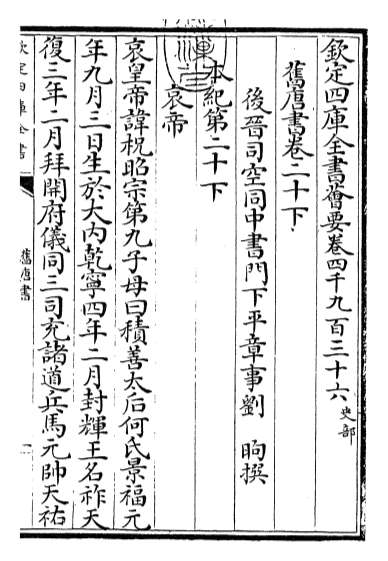 欽定四庫全書薈要卷四千九百三十六 史部
舊唐書卷二十下
後晉司空同中書門下平章事劉 昫撰
本紀第二十下
哀帝
哀皇帝諱柷昭宗第九子母曰積善太后何氏景福元
年九月三日生於大内乾寧四年二月封輝王名祚天
復三年二月拜開府儀同三司充諸道兵馬元帥天祐
欽定四庫全書
舊唐書